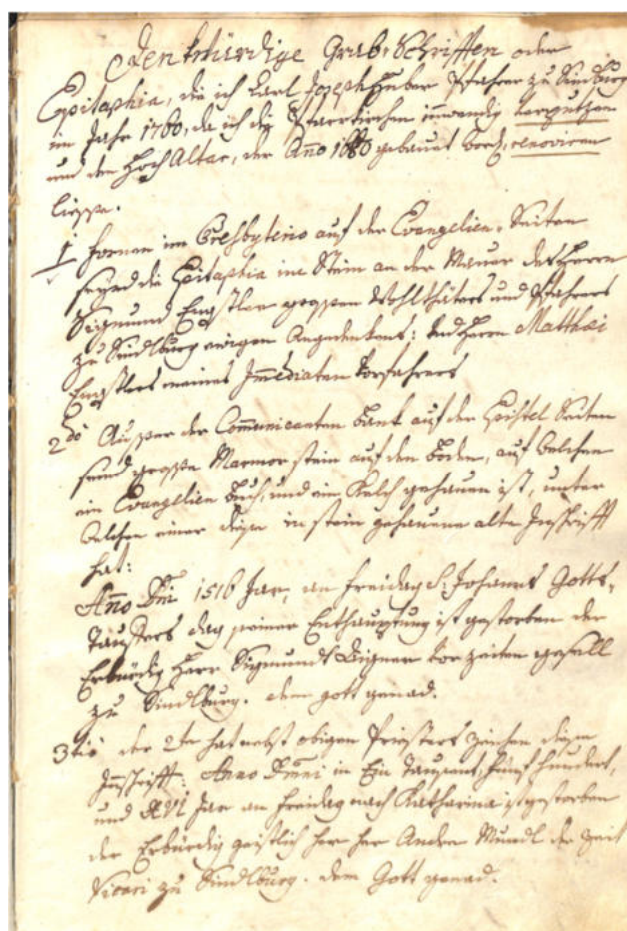 Denkwürdige Grab-Schrifften oder
Epitaphia, die ich Carl Joseph Huber Pfahrer zu Sindlburg
im Jahr 1760, da ich die Pfarrkirchen innwendig
und den Hoch Altar, der Año 1680 gebauet word, renoviren
liesse.
1 fornen im Presbyterio auf der Evangelien-Seiten
seynd die Epitaphia im Stein an der Mauer des Herrn
Sigmund Engstler grossen Wohlthäters und Pfahrers
zu Sindlburg ewigen Angedenkens: und Herrn Matthæi
Engstlers meines Im̃ediaten Vorfahrers
2do Ausser der Com̃unicanten banck auf der Epistel Seiten
seind grosse Marmor stein auf den boden, auf welchen
ein Evangelien buch, und ein Kelch gehauen ist, unter
welchen einer diese in stein gehauene alte Inschrifft
hat:
Año Dñi 1516 Jar, an freidag S. Johanns Gotts-
Tauffers dag seiner Enthauptung ist gestorben der
Erwürdig Herr Sigmundt vor zeiten gesell
zu Sindlburg. dem gott genad.
3tiò der 2te hat nebst obigen Priesters zeichen diese
Inschrifft: Anno Domini in Ein Tausent, Fünf hundert,
und XVI Jar an freidag nach Katharina ist gestorben
der Erwürdig geistlich her her Andre Mundl der zeit
Vicari zu Sindlburg. dem Gott genad.